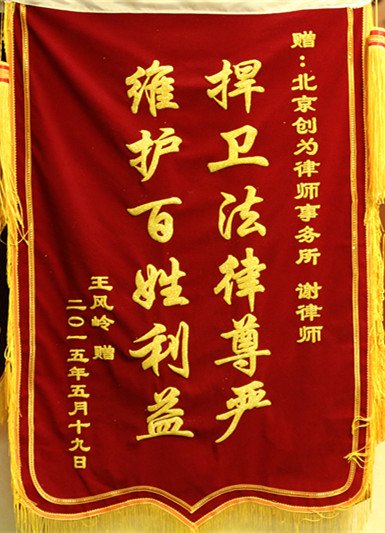 赠：北京创为律师事务所 谢律师
捍卫法律尊严
维护百姓利益
王风岭 赠
二〇一五年五月十九日